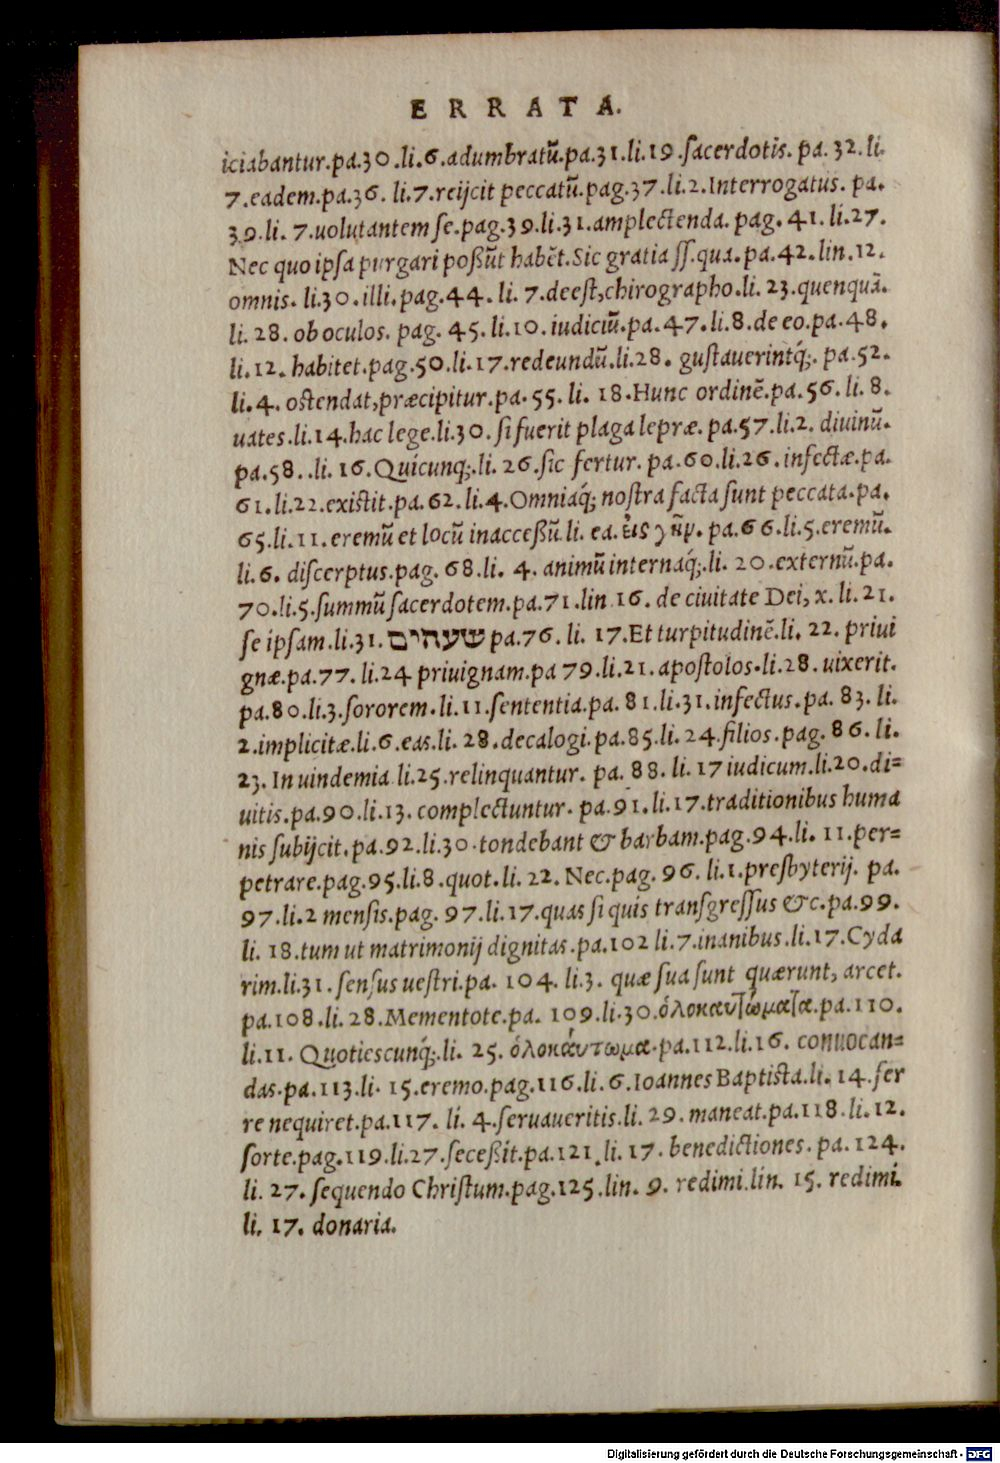 ERRATA.
iciabantur.pa.30.li.6.adumbratū.pa.31.li.19.ſacerdotis. pa. 32. li.
7.eadem.pa.36. li.7.reijcit peccatū.pag.37.li.2.Interrogatus. pa.
39.li. 7.uolutantem ſe.pag.39.li.31.amplectenda. pag. 41. li.27.
Nec quo ipſa purgari poßūt habēt.Sic gratia ſſ.qua.pa.42.lin.12.
omnis. li.30.illi.pag.44. li. 7.deeſt,chirographo.li. 23.quenquā.
li. 28. ob oculos. pag. 45.li.10.iudiciū.pa.47.li.8.de eo.pa.48.
li.12. habitet.pag.50.li.17.redeundū.li.28. guſtauerintq́;. pa.52.
li.4. oſtendat,præcipitur.pa.55. li. 18.Hunc ordinē.pa.56.li.8.
uates.li.14.hac lege.li.30. ſi fuerit plaga lepræ. pa.57.li.2. diuinū.
pa.58..li. 16.Quicunq;.li. 26.ſic fertur. pa.60.li.26.infectæ.pa.
61.li.22.exiſtit.pa.62.li.4.Omniaq́; noſtra facta ſunt peccata.pa.
65.li.11.eremū et locū inacceßū.li. ea.εἰς γῆν. pa.66.li.5.eremū.
li.6. diſcerptus.pag. 68.li. 4. animū internaq́;.li. 20.externū.pa.
70.li.5.ſummū ſacerdotem.pa.71.lin 16. de ciuitate Dei, x. li. 21.
ſe ipſam.li.31. שעהים pa.76. li. 17.Et turpitudinē.li. 22. priui
gnæ.pa.77. li.24 priuignam.pa 79.li.21.apoſtolos.li.28. uixerit.
pa.80.li.3.ſororem.li.11.ſententia.pa. 81.li.31.infectus.pa. 83. li.
2.implicitæ.li.6.eas.li. 28.decalogi.pa.85.li. 24.filios.pag. 86. li.
23. In uindemia li.25.relinquantur. pa. 88. li. 17 iudicum.li.20.di=
uitis.pa.90.li.13. complectuntur. pa.91.li.17.traditionibus huma
nis ſubijcit.pa.92.li.30.tondebant & barbam.pag.94.li. 11.per=
petrare.pag.95.li.8.quot.li. 22. Nec.pag. 96. li.1.presbyterij. pa.
97.li.2 menſis.pag. 97.li.17.quas ſi quis tranſgreſſus &c.pa.99.
li. 18.tum ut matrimonij dignitas.pa.102 li.7.inanibus.li.17.Cyda
rim.li.31.ſenſus ueſtri.pa. 104. li.3. quæ ſua ſunt quærunt, arcet.
pa.108.li. 28.Mementote.pa. 109.li.30.ὁλοκαυτώματα.pa.110.
li.11. Quotieſcunq́;.li. 25. ὁλοκάυτωμα.pa.112.li.16. conuocan=
das.pa.113.li. 15.eremo.pag.116.li.6.Ioannes Baptiſta.li. 14.fer
re nequiret.pa.117. li. 4.ſeruaueritis.li. 29. maneat.pa.118.li.12.
ſorte.pag.119.li.27.ſeceßit.pa.121.li. 17. benedictiones. pa. 124.
li. 27. ſequendo Chriſtum.pag.125.lin. 9. redimi.lin. 15. redimi.
li. 17. donaria.
Digitalisierung gefördert durch die Deutsche Forschungsgemeinschaft - DFG